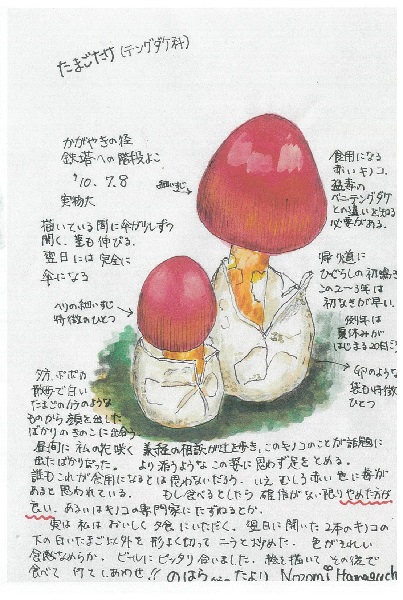 たまごたけ(テングダケ科)
かがやきの径
鉄塔への階段よこ
'10.7.8
実物大
描いている間に傘が少しずつ
開く。茎も伸びる。
翌日には完全に
傘になる
細いすじ
食用になる
赤いキノコ。
猛毒の
ベニテングダケ
との違いを知る
必要がある。
帰り道に
ひぐらしの初鳴き
この2〜3年は
初なきが早い。
例年は
夏休みが
はじまる20日ごろ
へりの細いすじ
特徴のひとつ
卵のような
袋も特徴
ひとつ
夕方、ポポの
散歩で白い
たまごのカラのような
ものから顔を出した
ばかりのきのこに出会う
昼間に 私の花咲く 義経の相談が辻を歩き、このキノコのことが話題に
出たばかりだった。 より添うような この姿に思わず足をとめる。
誰もこれが食用になるとは思わないだろう。 いえ むしろ赤い色に毒が
あると思われている。 もし食べるとしたら 確信がない限り やめた方が
良い。 あるいはキノコの専門家にたずねるとか。
実は 私は おいしく 夕食にいただく。 翌日に開いた 2本のキノコの
下の白いたまご以外を 形よく切って こうと炒めた。 色がきれい
食感なめらか、 ビールに ピッタリ合いました。 絵を描いて その後で
食べて しあわせ!! のはら たより Nozomi Hamaguchi